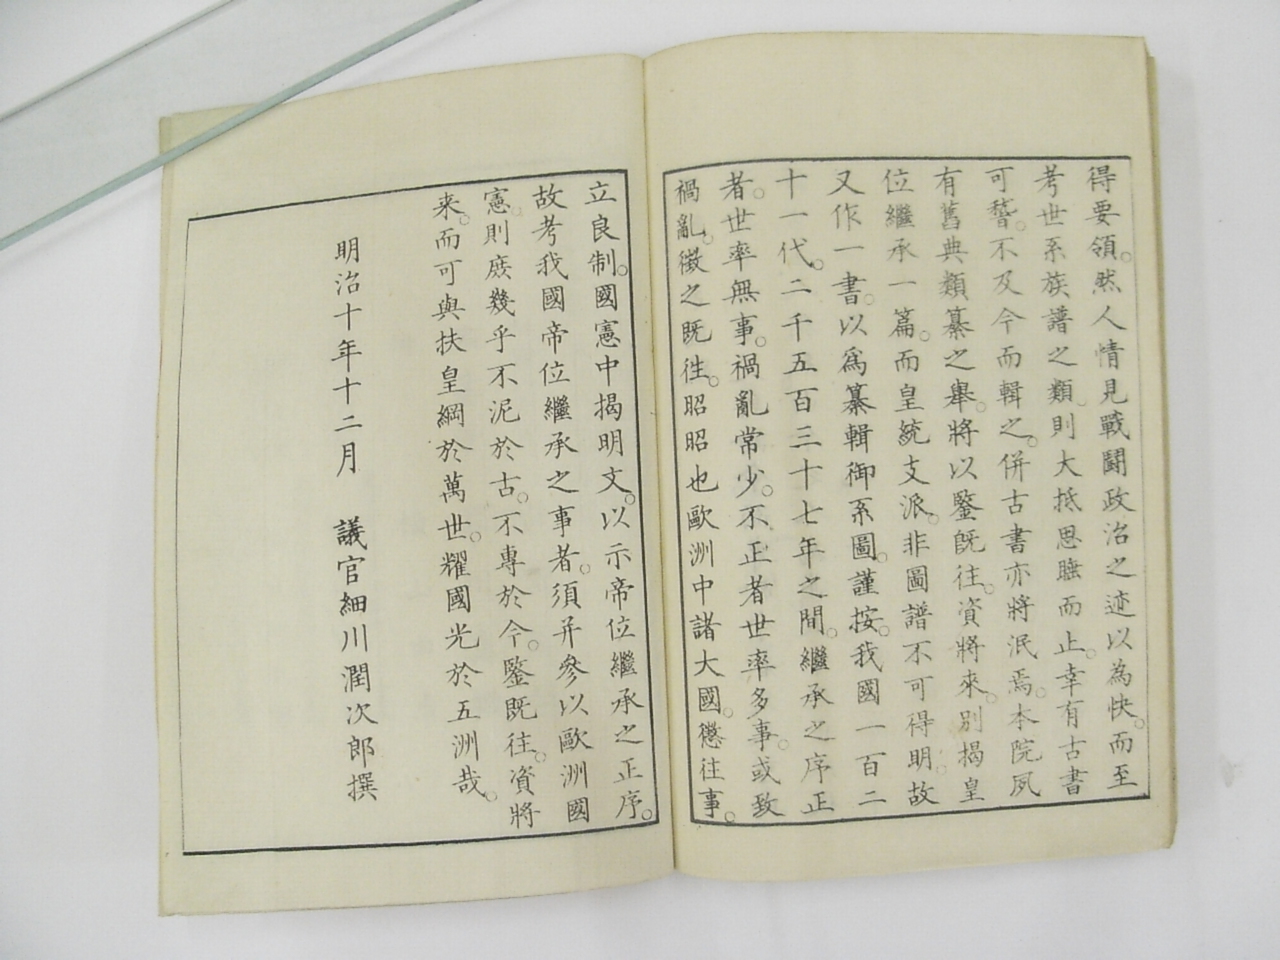 得要領。然人情見戰鬪政治之迹以為快。而至
考世系族譜之類。則大抵思睡而止。幸有古書
可稽。不及今而輯之。併古書亦將泯焉。本院夙
有舊典類纂之舉。將以鑒既往。資將來。別揭皇
位繼承一篇。而皇統支派。非圖譜不可得明。故
又作一書。以爲纂輯御系圖。謹按。我國一百二
十一代。二千五百三十七年之間。繼承之序正
者。世率無事。禍亂常少。不正者世率多事。或致
禍亂。徵之既往。昭昭也歐洲中諸大國。懲往事。
立良制。國憲中揭明文。以示帝位繼承之正序。
故考我國帝位繼承之事者。須并參以歐洲國
憲。則庶幾乎不泥於古。不專於今。鑒既往。資將
来。而可與扶皇綱於萬世。耀國光於五洲哉。
明治十年十二月　議官細川潤次郎撰